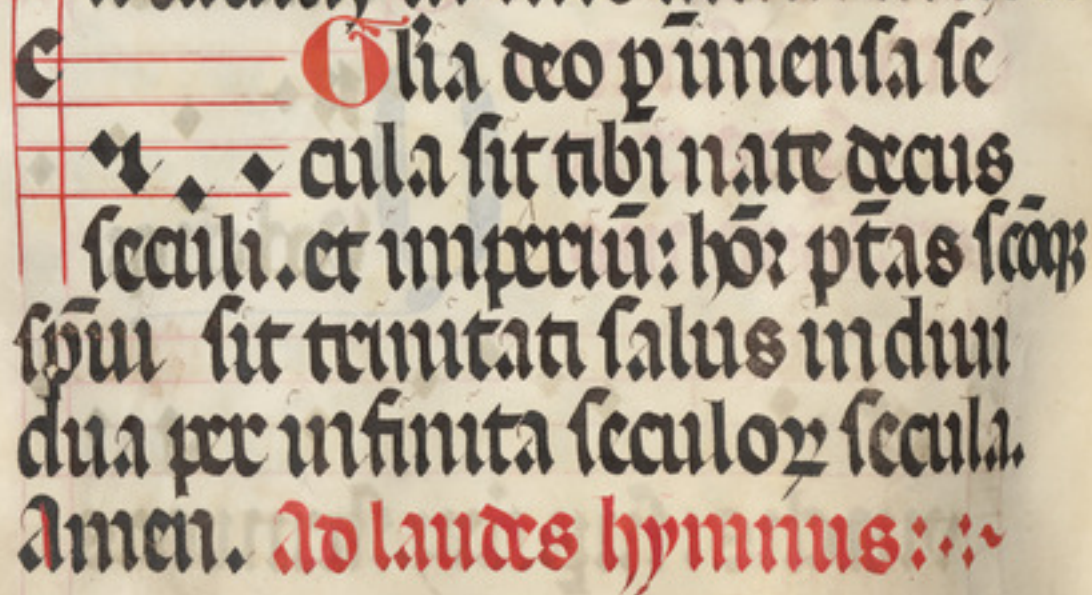 Glia deo p̲ īmensa se
cula sit tibi nate decus
seculi. et imperiū: hōr ptās scōqꝫ
sp̄ui sit trinitati salus indiui
dua per infinita seculoꝝ secula.
Amen. Ad laudes hymnus: